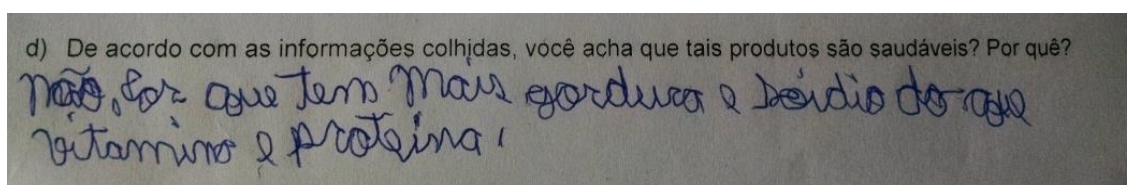 d) De acordo com as informações colhidas, você acha que tais produtos são saudáveis? Por quê?
Não, Por que tem mais gordura e sódio do que
vitamino e proteina.